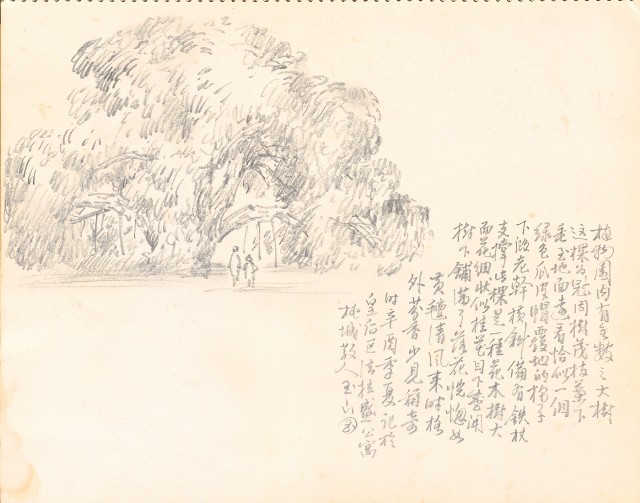 植物園內有無數之大樹
這棵為冠因樹茂枝葉下
垂至地面遠看恰似一個
綠色瓜皮帽覆地的樣子
下段老幹橫斜備有鐵杖
支撐此棵是一種花木樹大
而花細狀似桂花目下盛開
樹下鋪滿了落花恍惚如
黃氈清風來時格
外芬香少見稱奇
時辛酉季夏記於
皇后巴法拉盛公寓
桃城散人玉山